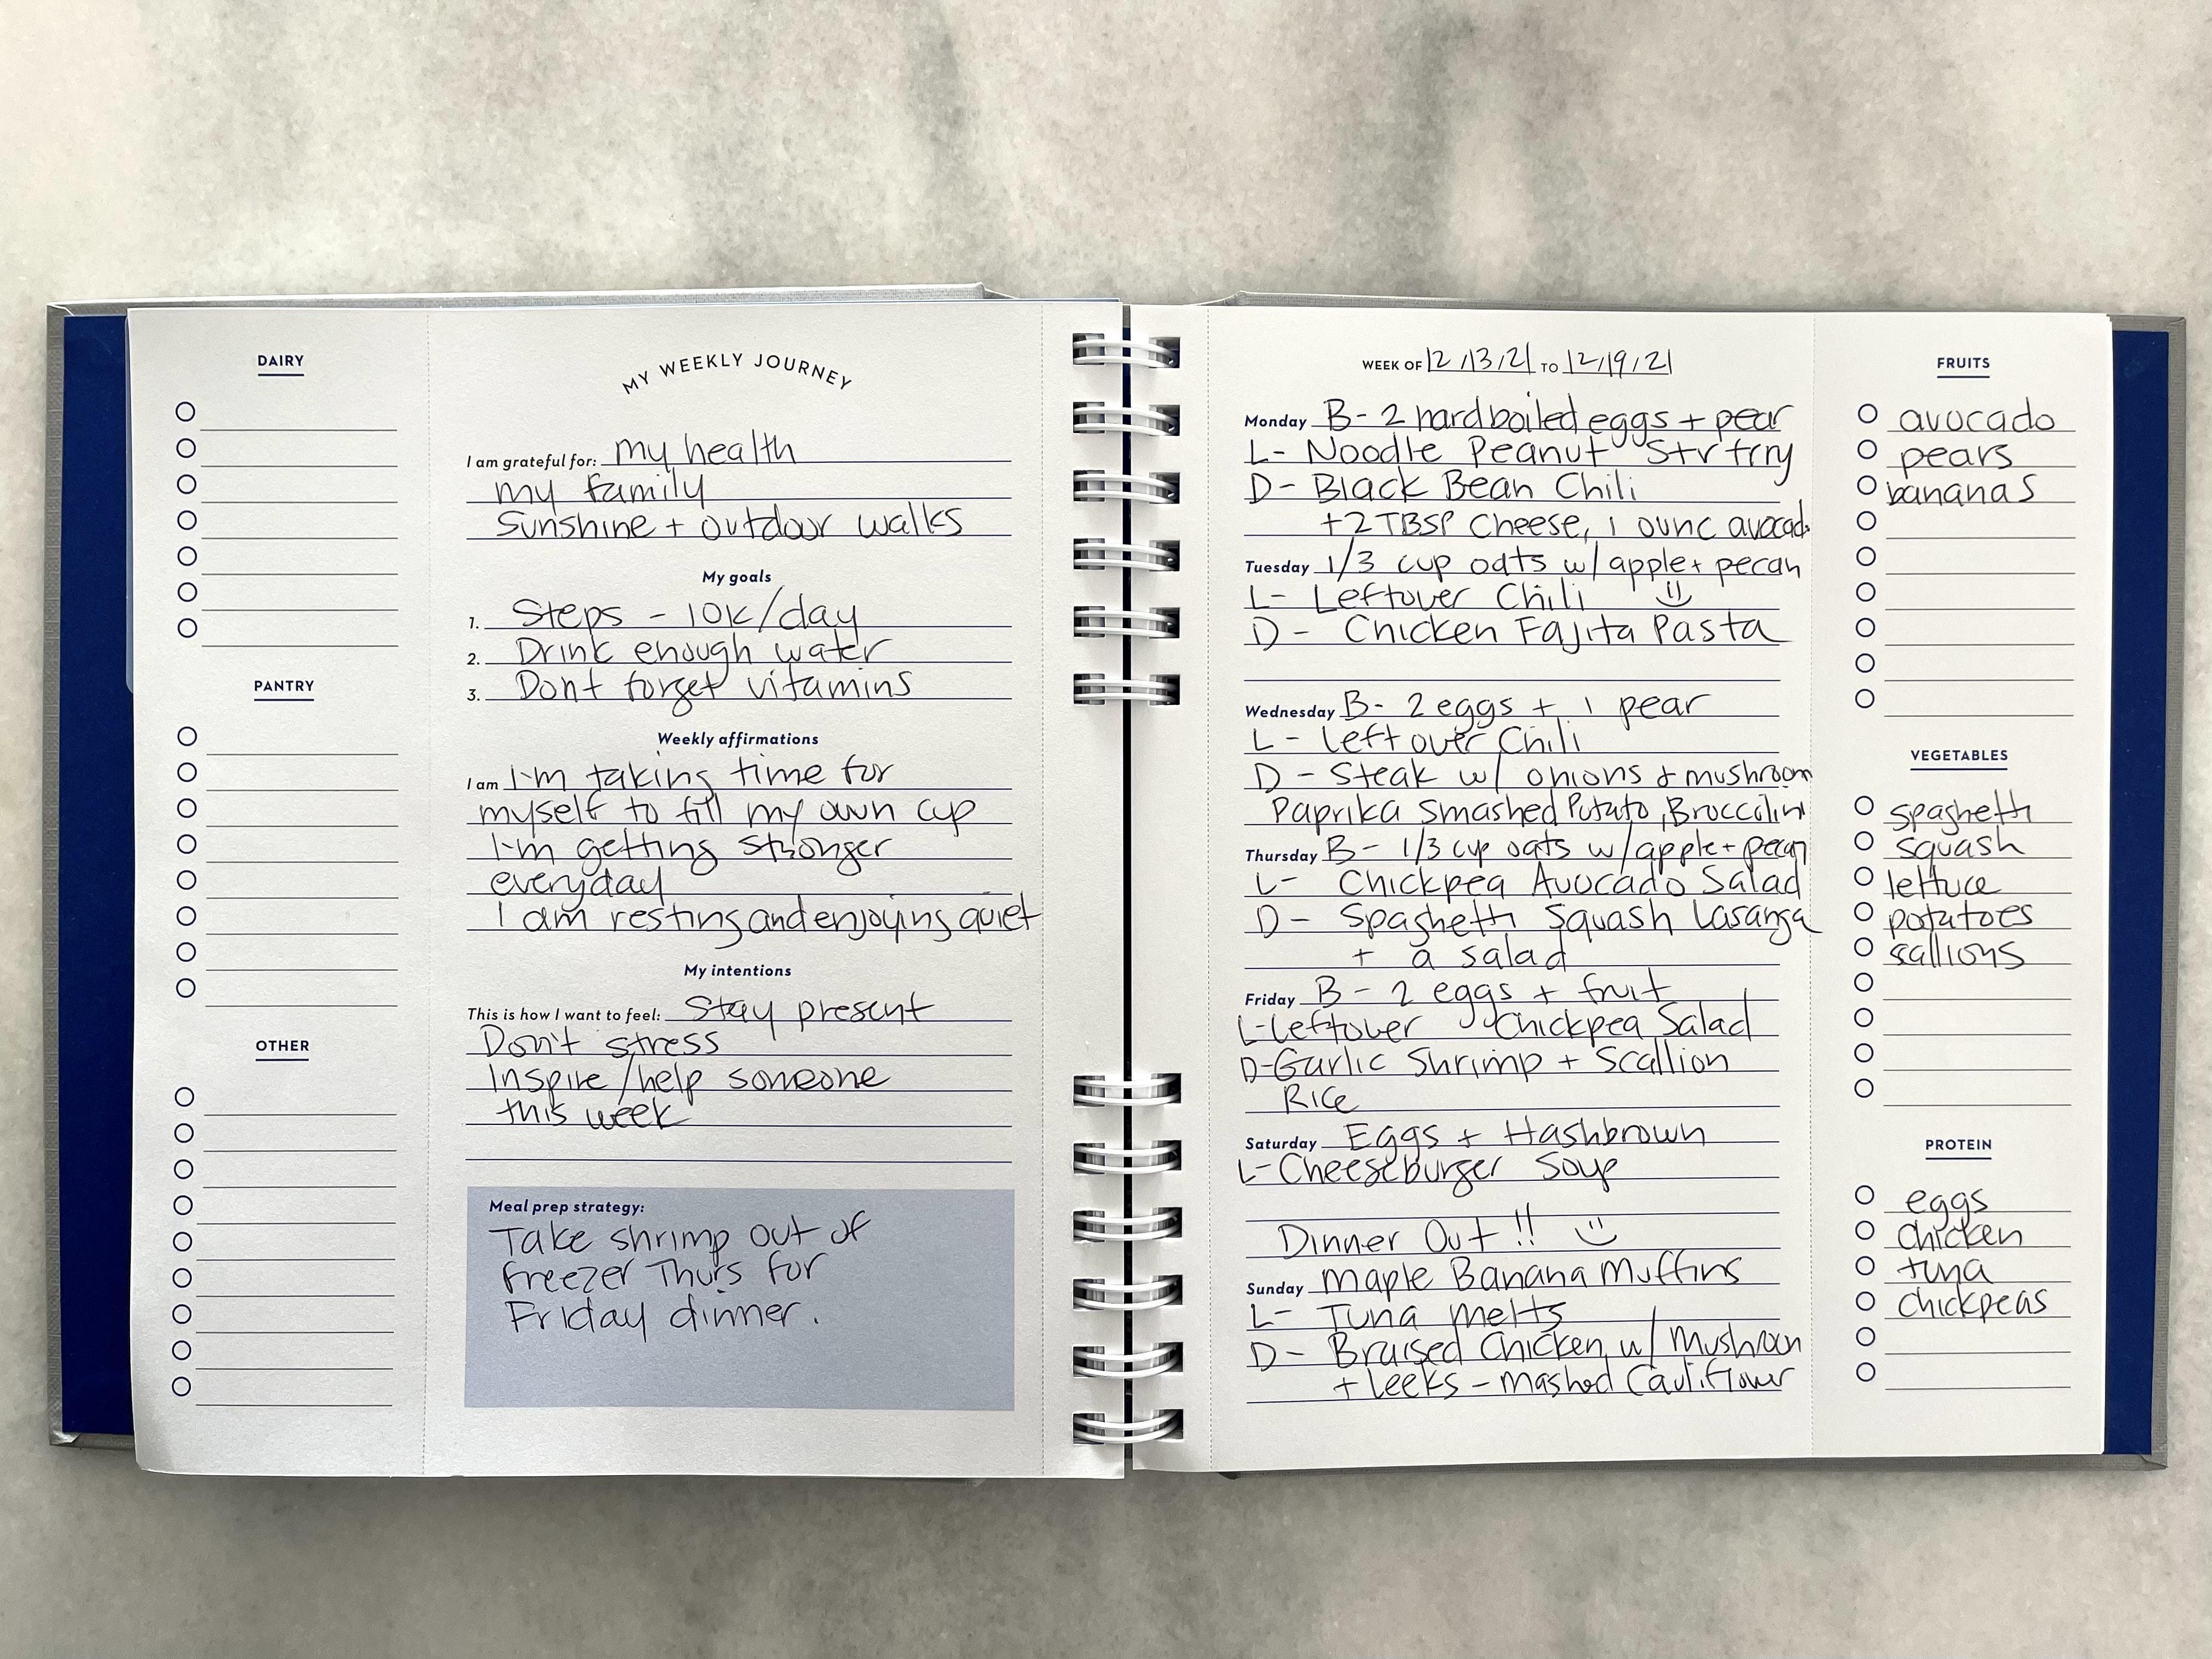 DAIRY
PANTRY
OTHER
MY WEEKLY JOURNEY
I am grateful for: my health
my family
Sunshine + outdoor walks
My goals
1. Steps - 10k/day
2. Drink enough water
3. Dont forget vitamins
Weekly affirmations
I am I'm taking time for
myself to fill my own cup
I'm getting stronger
everyday
I am resting and enjoying quiet
My intentions
This is how I want to feel: Stay present
Don't stress
Inspire/help someone
this week
Meal prep strategy:
Take shrimp out of
freezer Thurs for
Friday dinner.
WEEK OF 12/13/21 TO 12/19/21
Monday B- 2 hardboiled eggs + pear
L- Noodle Peanut Strfry
D- Black Bean Chili
+2 TBSP Cheese, 1 ounc avocado
Tuesday 1/3 cup oats w/ apple + pecan
L- Leftover Chili
D- Chicken Fajita Pasta
Wednesday B- 2 eggs + 1 pear
L- Leftover Chili
D- Steak w/ onions & mushroom
Paprika Smashed Potato, Broccolini
Thursday B- 1/3 cup oats w/ apple + pecan
L- Chickpea Avocado Salad
D- Spaghetti Squash Lasanga
+ a salad
Friday B- 2 eggs + fruit
L- Leftover Chickpea Salad
D- Garlic Shrimp + Scallion
Rice
Saturday Eggs + Hashbrown
L- Cheeseburger Soup
Dinner Out!!
Sunday Maple Banana Muffins
L- Tuna melts
D- Braised Chicken w/ Mushroom
+ Leeks - mashed Cauliflower
FRUITS
avocado
pears
bananas
VEGETABLES
spaghetti
squash
lettuce
potatoes
scallions
PROTEIN
eggs
chicken
tuna
chickpeas